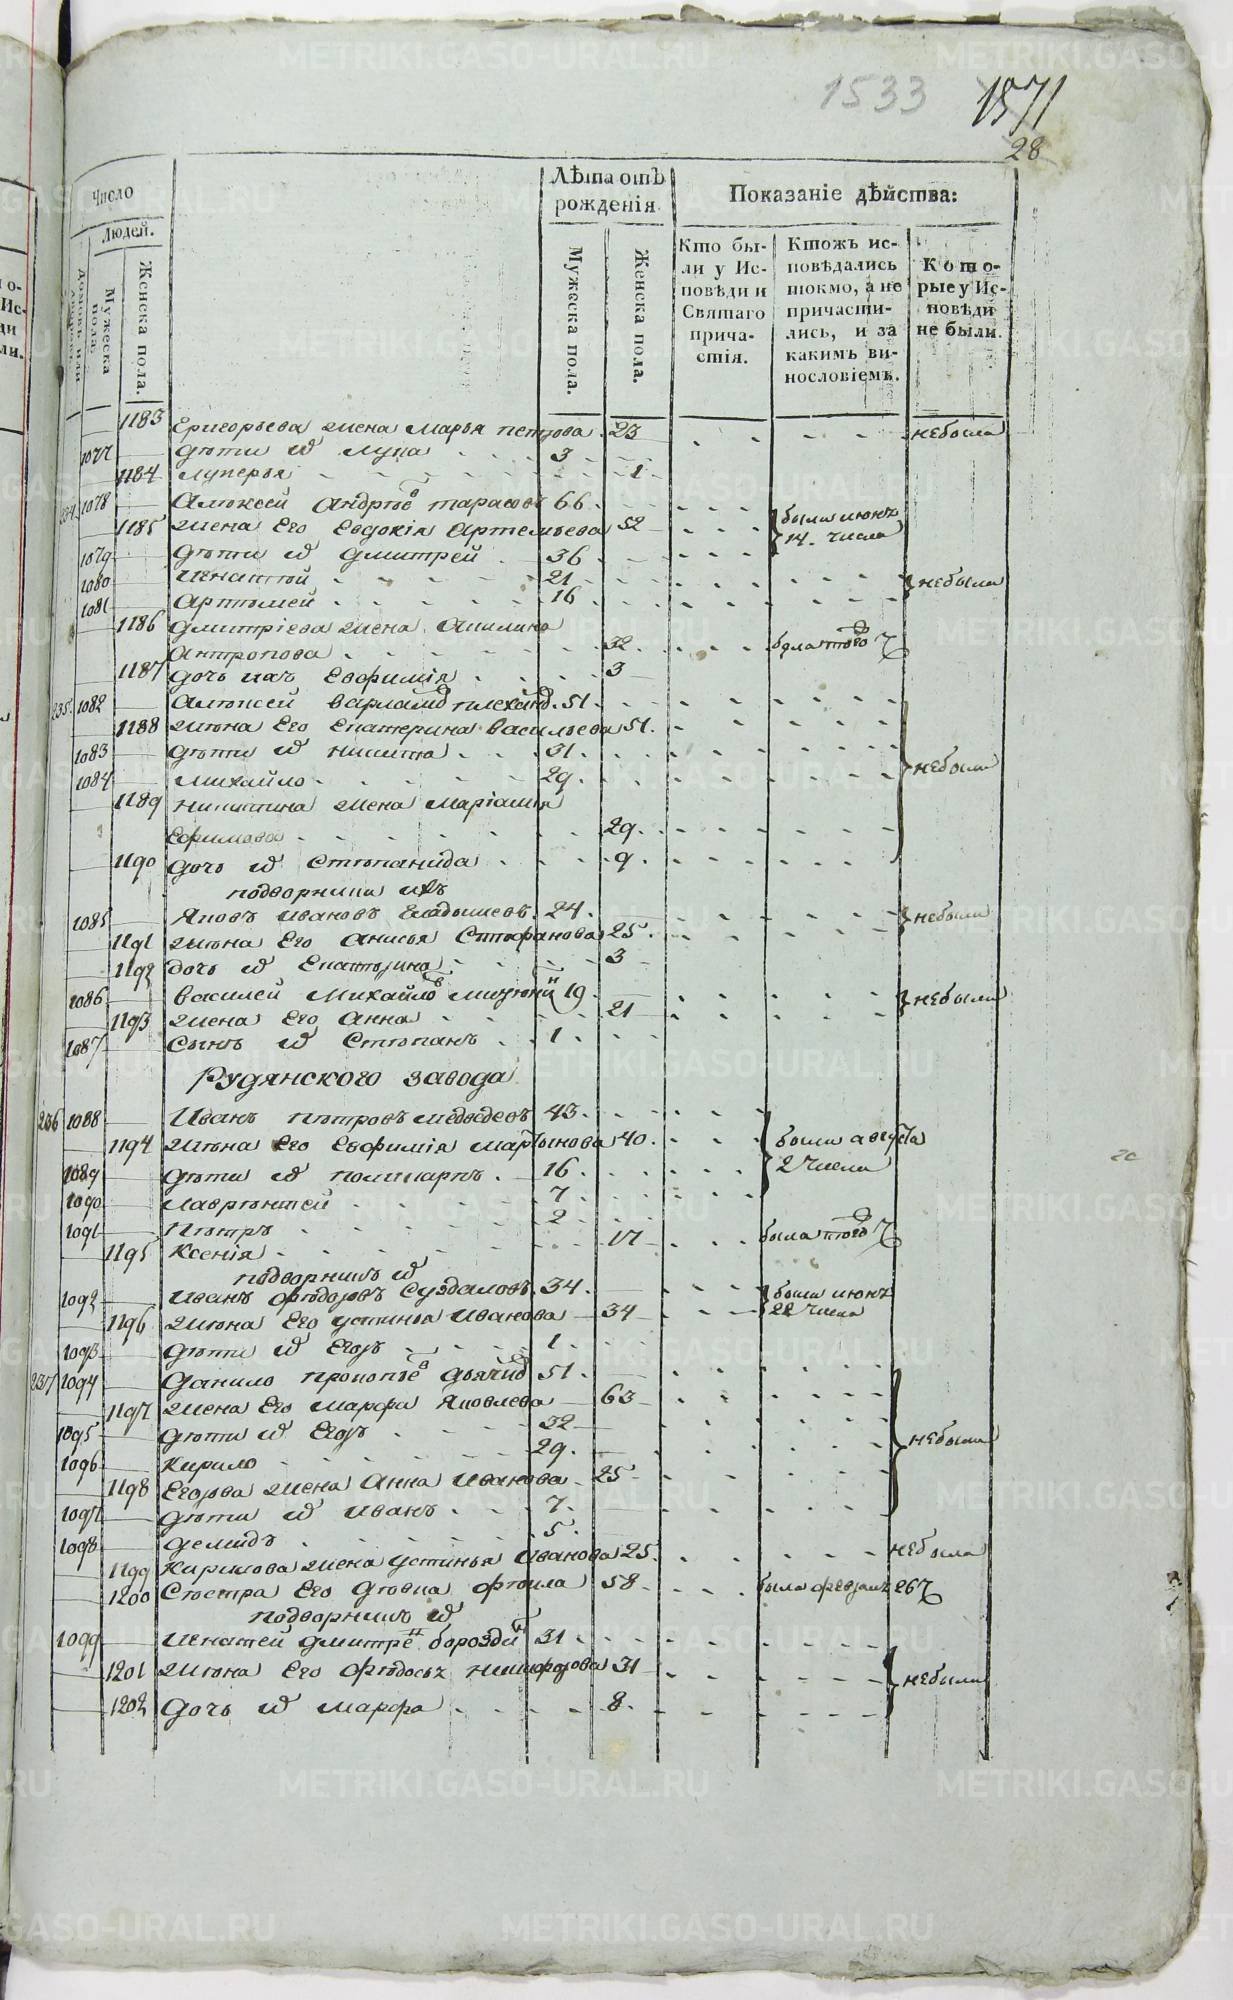 1533
1571
28
Число
Людей.
Лѣта отъ
рожденія.
Показаніе дѣйства:
Мужеска
пола.
Женска пола.
Мужеска пола.
Женска пола.
Кто бы-
ли у Ис-
повѣди и
Святаго
прича-
стія.
Ктожъ ис-
повѣдались
токмо, а не
причасти-
лись, и за
какимъ ви-
нословіемъ.
Кото-
рые у Ис-
повѣди
не были.
1183 Григорьева жена Марья Петрова 23 небыла
1077 дѣти их Лупа 3
1184 Лукерья 1
234 1078 Алексей Андрѣев Тарасовъ 66
1185 жена Его Евдокія Артемьева 52 были июня 14. числа
1079 дѣти их Дмитрей 36
1080 Игнатей 21 небыли
1081 Артемей 16
1186 Дмитріева жена Акилина
Антропова 32 была того ч
1187 дочь ихъ Евфимія 3
235 1082 Алексей Варламов 51
1188 жена Его Екатерина Васильева 51
1083 дѣти их Никита 31
1084 Михайло 29 небыли
1189 Никитина жена Маріамія
Ефимова 29
1190 дочь их Степанида 9
подворники ихъ
1085 Яковъ Ивановъ Гладышевъ 24 небыли
1191 жена Его Анисья Стефанова 25
1192 дочь их Екатерина 3
1086 Василей Михайлов 19 небыли
1193 жена Его Анна 21
1087 Сынъ их Степанъ 1
Рудянского завода
236 1088 Иванъ Петровъ Медведевъ 43
1194 жена Его Евфимія Мартынова 40 были августа
1089 дѣти их Поликарпъ 16 2 числа
1090 Лаврентей 7
1091 Петръ 2
1195 Ксенія 17 была того ч
подворникъ их
1092 Иванъ Федоровъ Суздаловъ 34 были июня
1196 жена Его Устинья Иванова 34 22 числа
1093 дѣти их Егоръ 1
237 1094 Данило Прокопьев 51
1197 жена Его Марфа Яковлева 63
1095 дѣти их Егоръ 32 небыли
1096 Кирило 29
1198 Егорова жена Анна Иванова 25
1097 дѣти их Иванъ 7
1098 Демидъ 5
1199 Кирилова жена Устинья Иванова 25 небыла
1200 Сестра Его Девка Фекла 58 была февраля 26 ч
подворникъ их
1099 Игнатей Дмитрев Бороздин 31
1201 жена Его Федосья Никифорова 31 небыли
1202 Дочь их Марфа 8
METRIKI.GASO-URAL.RU